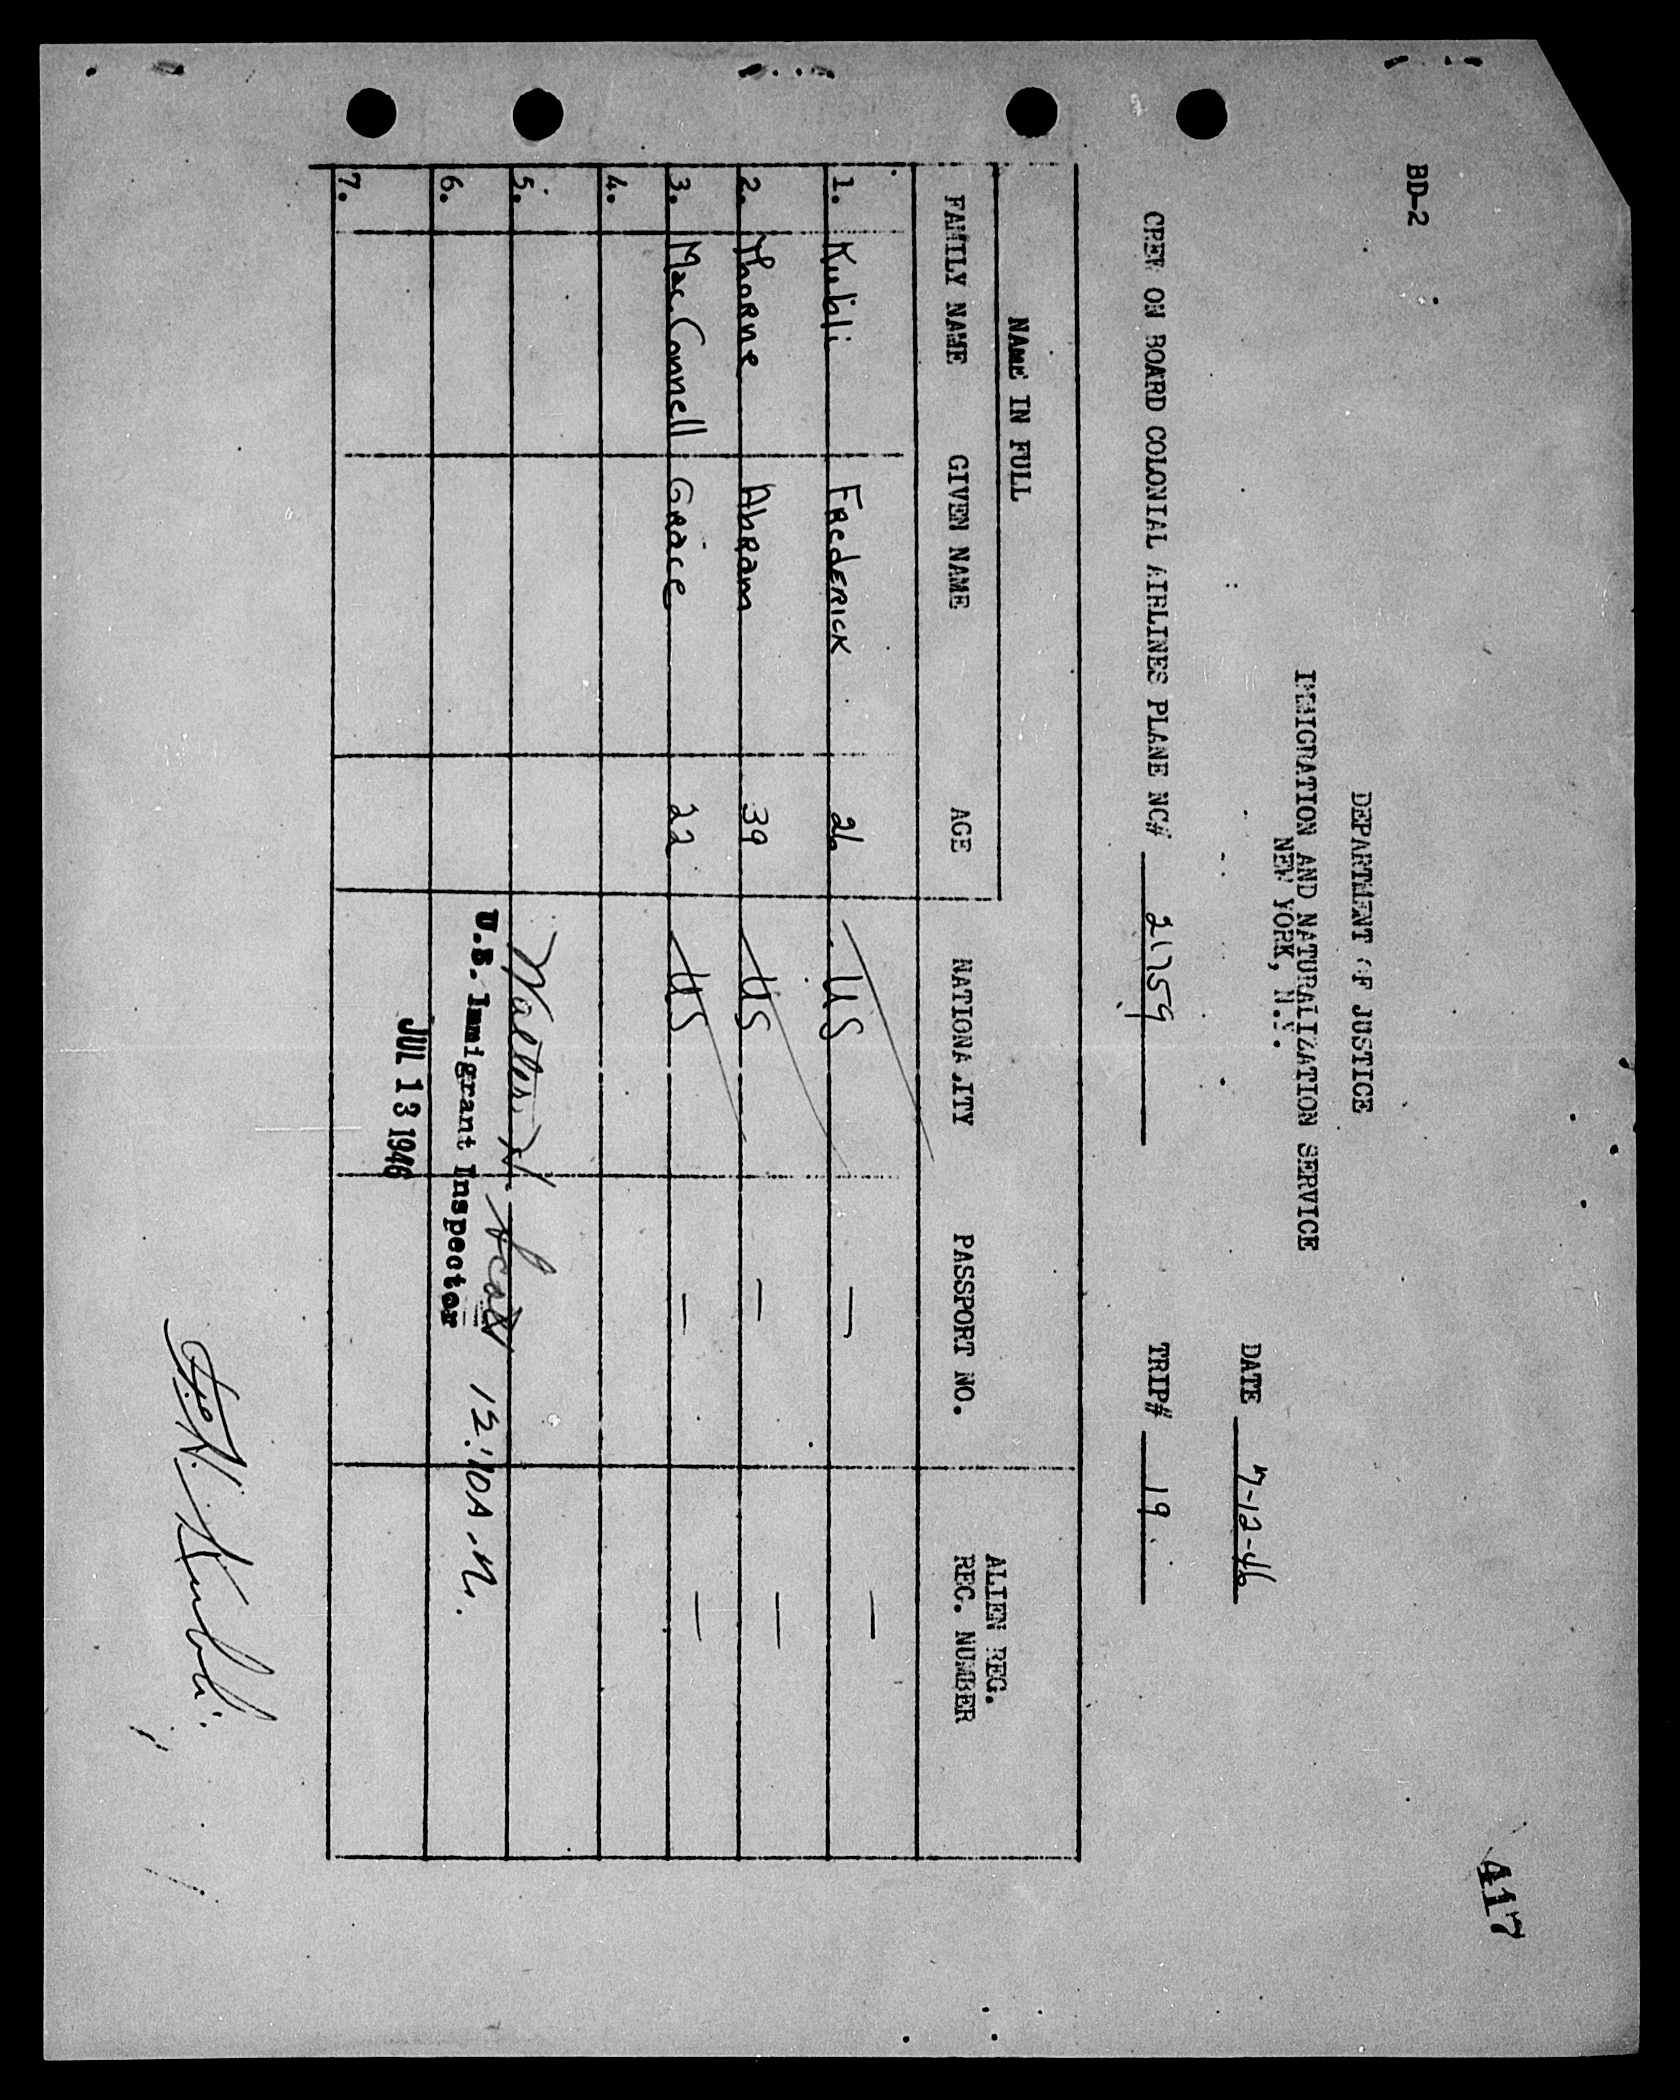 417
BD-2
DEPARTMENT OF JUSTICE
IMMIGRATION AND NATURALIZATION SERVICE
NEW YORK, N.Y.
DATE 7-12-46
CREW ON BOARD COLONIAL AIRLINES PLANE NC# 21759 TRIP# 19
NAME IN FULL
FAMILY NAME GIVEN NAME AGE NATIONALITY PASSPORT NO. ALIEN REG. REC. NUMBER
1. Kubli Frederick 26 US — —
2. Thorne Abram 39 US — —
3. MacConnell Grace 22 US — —
4.
5. Walter H. 12:10 A.M.
6. U.S. Immigrant Inspector
JUL 13 1946
7.
F.H. Kubli